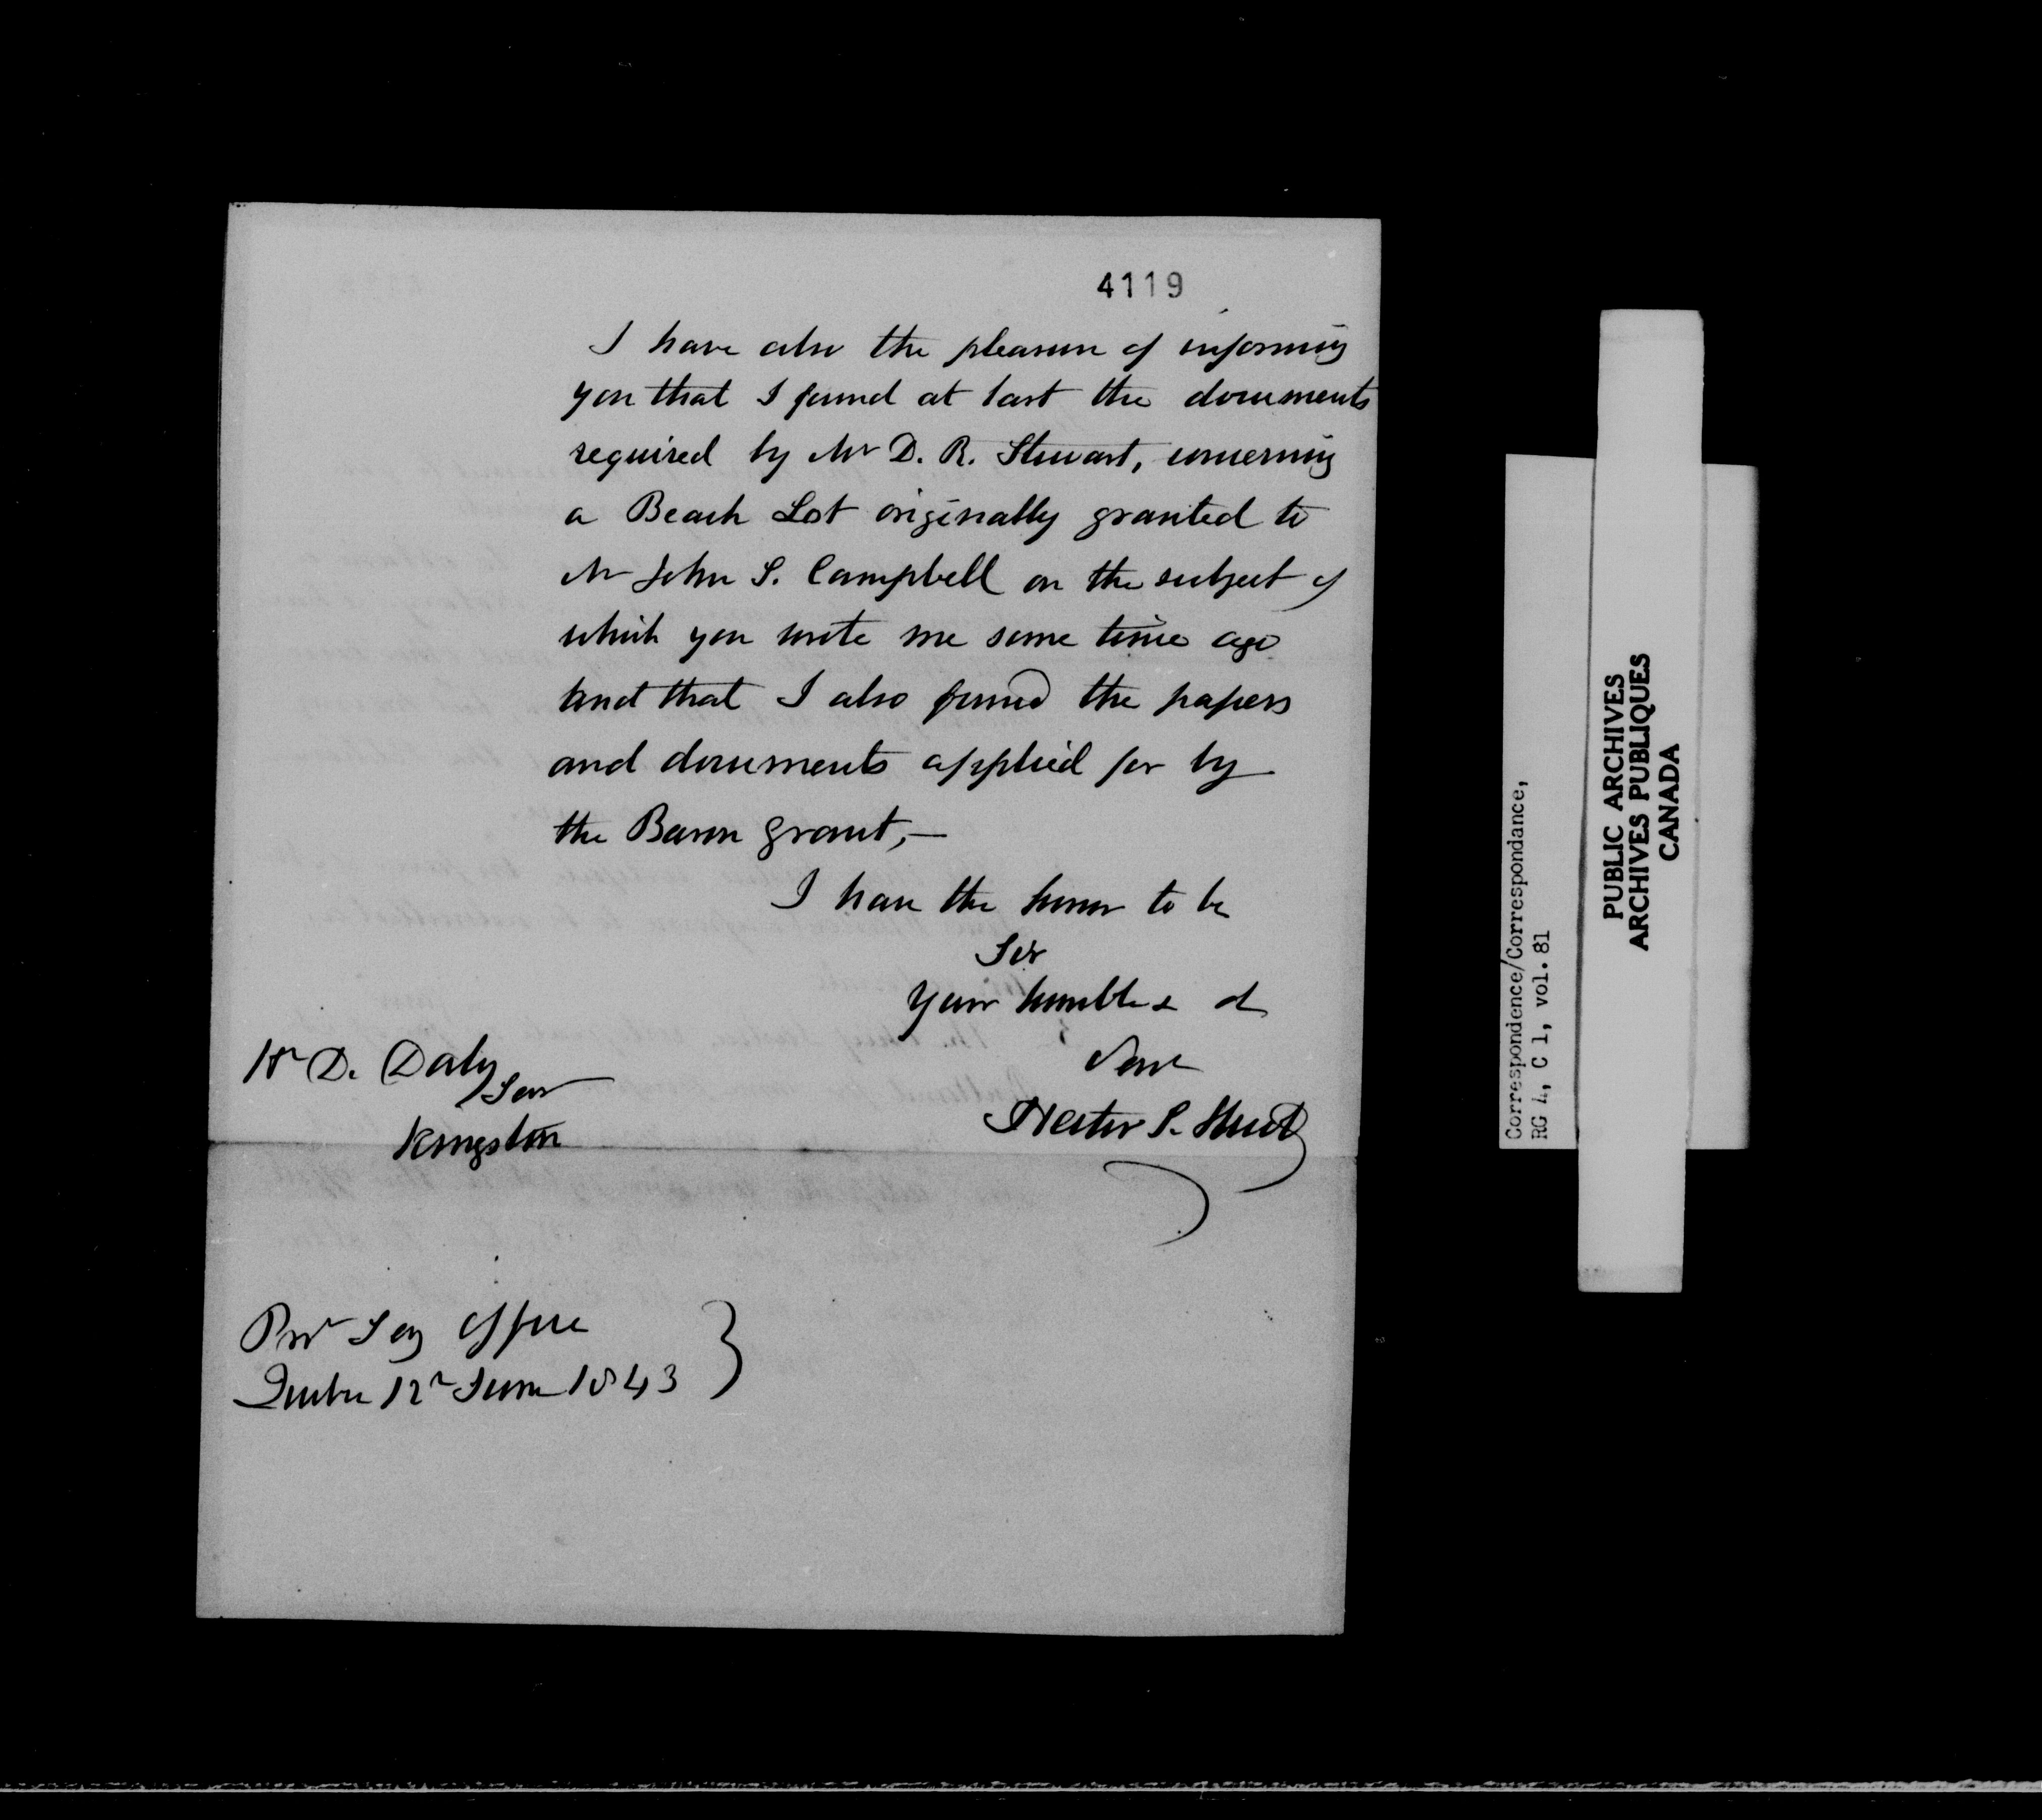 4119
I have also the pleasure of informing
you that I found at last the documents
required by Mr D. R. Stewart, concerning
a Beach Lot originally granted to
Mr John S. Campbell on the subject of
which you wrote me some time ago
and that I also found the papers
and documents applied for by
the Baron Grant,—
I have the honor to be
Sir
Your humble &
Servt
D. Daly
Kingston
Prov Secy Office
Quebec 12 June 1843
Correspondence/Correspondance,
RG 4, C 1, vol. 81
PUBLIC ARCHIVES
ARCHIVES PUBLIQUES
CANADA